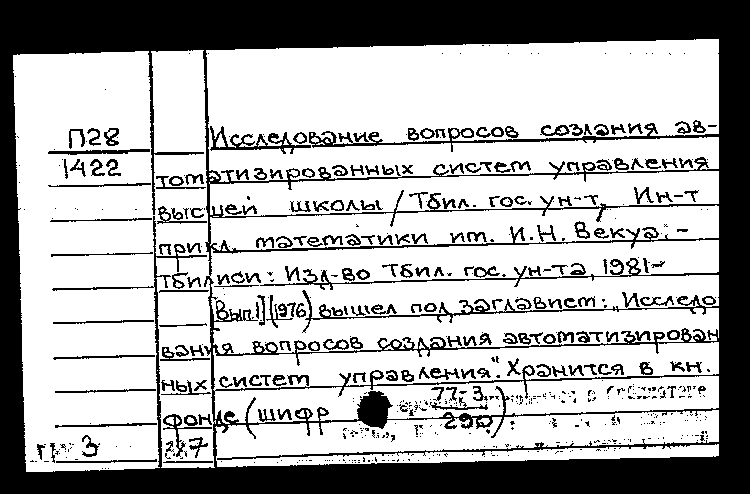 П28 Исследование вопросов создания ав-
1422 томатизированных систем управления
высшей школы / Тбил. гос. ун-т, Ин-т
прикл. математики им. И.Н. Векуа. -
Тбилиси: Изд-во Тбил. гос. ун-та, 1981-
[Вып.1] (1976) вышел под заглавием: „Исследо
вания вопросов создания автоматизирован
ных систем управления". Хранится в кн.
фонде (шифр 77-3
290).
3 387